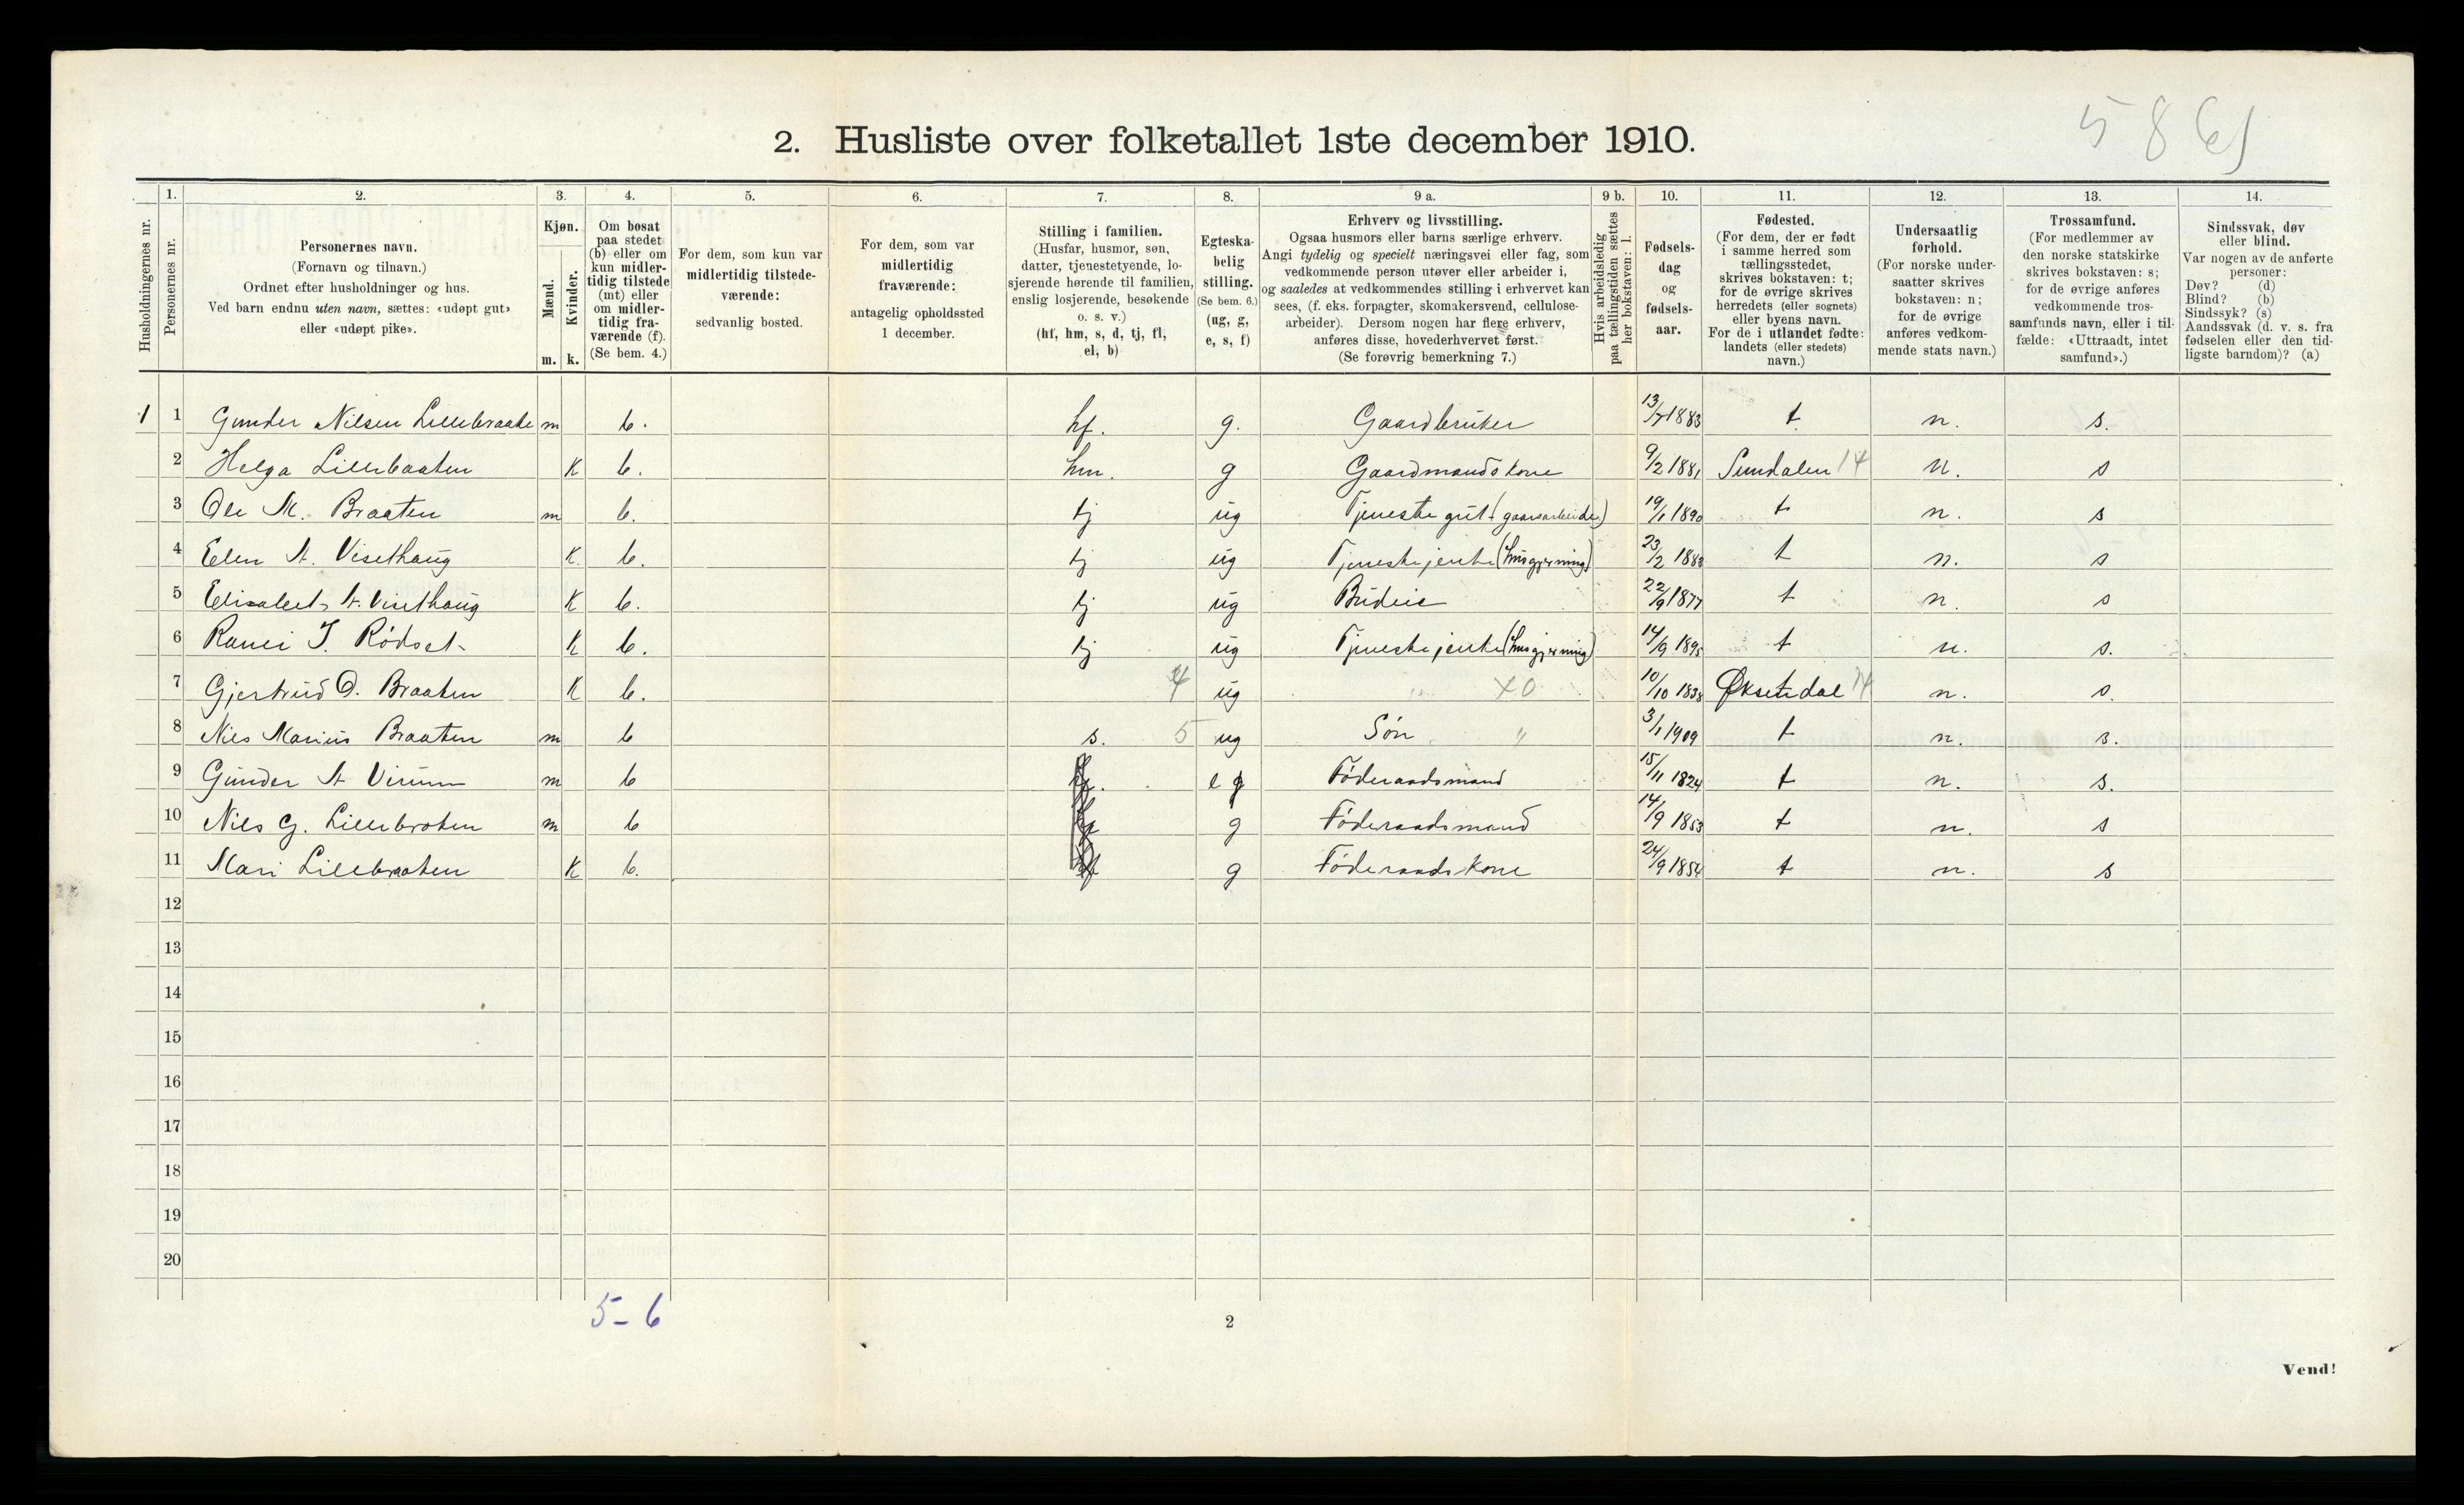 5861
2. Husliste over folketallet 1ste december 1910.
Husholdningernes nr.
1. Personernes nr.
2. Personernes navn. (Fornavn og tilnavn.) Ordnet efter husholdninger og hus. Ved barn endnu uten navn, sættes: «udøpt gut» eller «udøpt pike».
3. Kjøn. Mænd. m. Kvinder. k.
4. Om bosat paa stedet (b) eller om kun midlertidig tilstede (mt) eller om midlertidig fraværende (f). (Se bem. 4.)
5. For dem, som kun var midlertidig tilstedeværende: sedvanlig bosted.
6. For dem, som var midlertidig fraværende: antagelig opholdssted 1 december.
7. Stilling i familien. (Husfar, husmor, søn, datter, tjenestetyende, losjerende hørende til familien, enslig losjerende, besøkende o. s. v.) (hf, hm, s, d, tj, fl, el, b)
8. Egteskabelig stilling. (Se bem. 6.) (ug, g, e, s, f)
9 a. Erhverv og livsstilling. Ogsaa husmors eller barns særlige erhverv. Angi tydelig og specielt næringsvei eller fag, som vedkommende person utøver eller arbeider i, og saaledes at vedkommendes stilling i erhvervet kan sees, (f. eks. forpagter, skomakersvend, cellulosearbeider). Dersom nogen har flere erhverv, anføres disse, hovederhvervet først. (Se forøvrig bemerkning 7.)
9 b. Hvis arbeidsledig paa tællingstiden sættes her bokstaven: l.
10. Fødselsdag og fødselsaar.
11. Fødested. (For dem, der er født i samme herred som tællingsstedet, skrives bokstaven: t; for de øvrige skrives herredets (eller sognets) eller byens navn. For de i utlandet fødte: landets (eller stedets) navn.)
12. Undersaatlig forhold. (For norske undersaatter skrives bokstaven: n; for de øvrige anføres vedkommende stats navn.)
13. Trossamfund. (For medlemmer av den norske statskirke skrives bokstaven: s; for de øvrige anføres vedkommende trossamfunds navn, eller i tilfælde: «Uttraadt, intet samfund».)
14. Sindssvak, døv eller blind. Var nogen av de anførte personer: Døv? (d) Blind? (b) Sindssyk? (s) Aandssvak (d. v. s. fra fødselen eller den tidligste barndom)? (a)
1 1 Gunder Nilsen Lillebraate m b. hf. g. Gaardbruker 13/7 1883 t n. s.
2 Helga Lillebaaten K b. hm. g Gaardmandskone 9/2 1881 Sundalen 14 n. s
3 Ole M. Braaten m b. tj ug Tjeneste gut (gaarsarbeide) 19/1 1890 t n. s
4 Elen A. Visethaug K. b. tj ug Tjenestejente (husgjerning) 23/2 1883 t n. s
5 Elisabet A. Visethaug K b. tj ug Budeie 22/9 1877 t n. s
6 Ranei J. Rødset K b. tj ug Tjenestejente (husgjerning) 14/9 1895 t n. s.
7 Gjertrud O. Braaten K b. 4 ug X0 10/10 1838 Øksendal 14 n. s.
8 Nils Marius Braaten m b s. 5 ug Søn " 3/1 1909 t n. s.
9 Gunder A Virum m b e g Føderaadsmand 15/11 1824 t n. s.
10 Nils G. Lillebroten m b g Føderaadsmand 14/9 1853 t n. s
11 Mari Lillebraaten K b. g Føderaadskone 24/9 1854 t n. s
12
13
14
15
16
17
18
19
20
5-6
2
Vend!